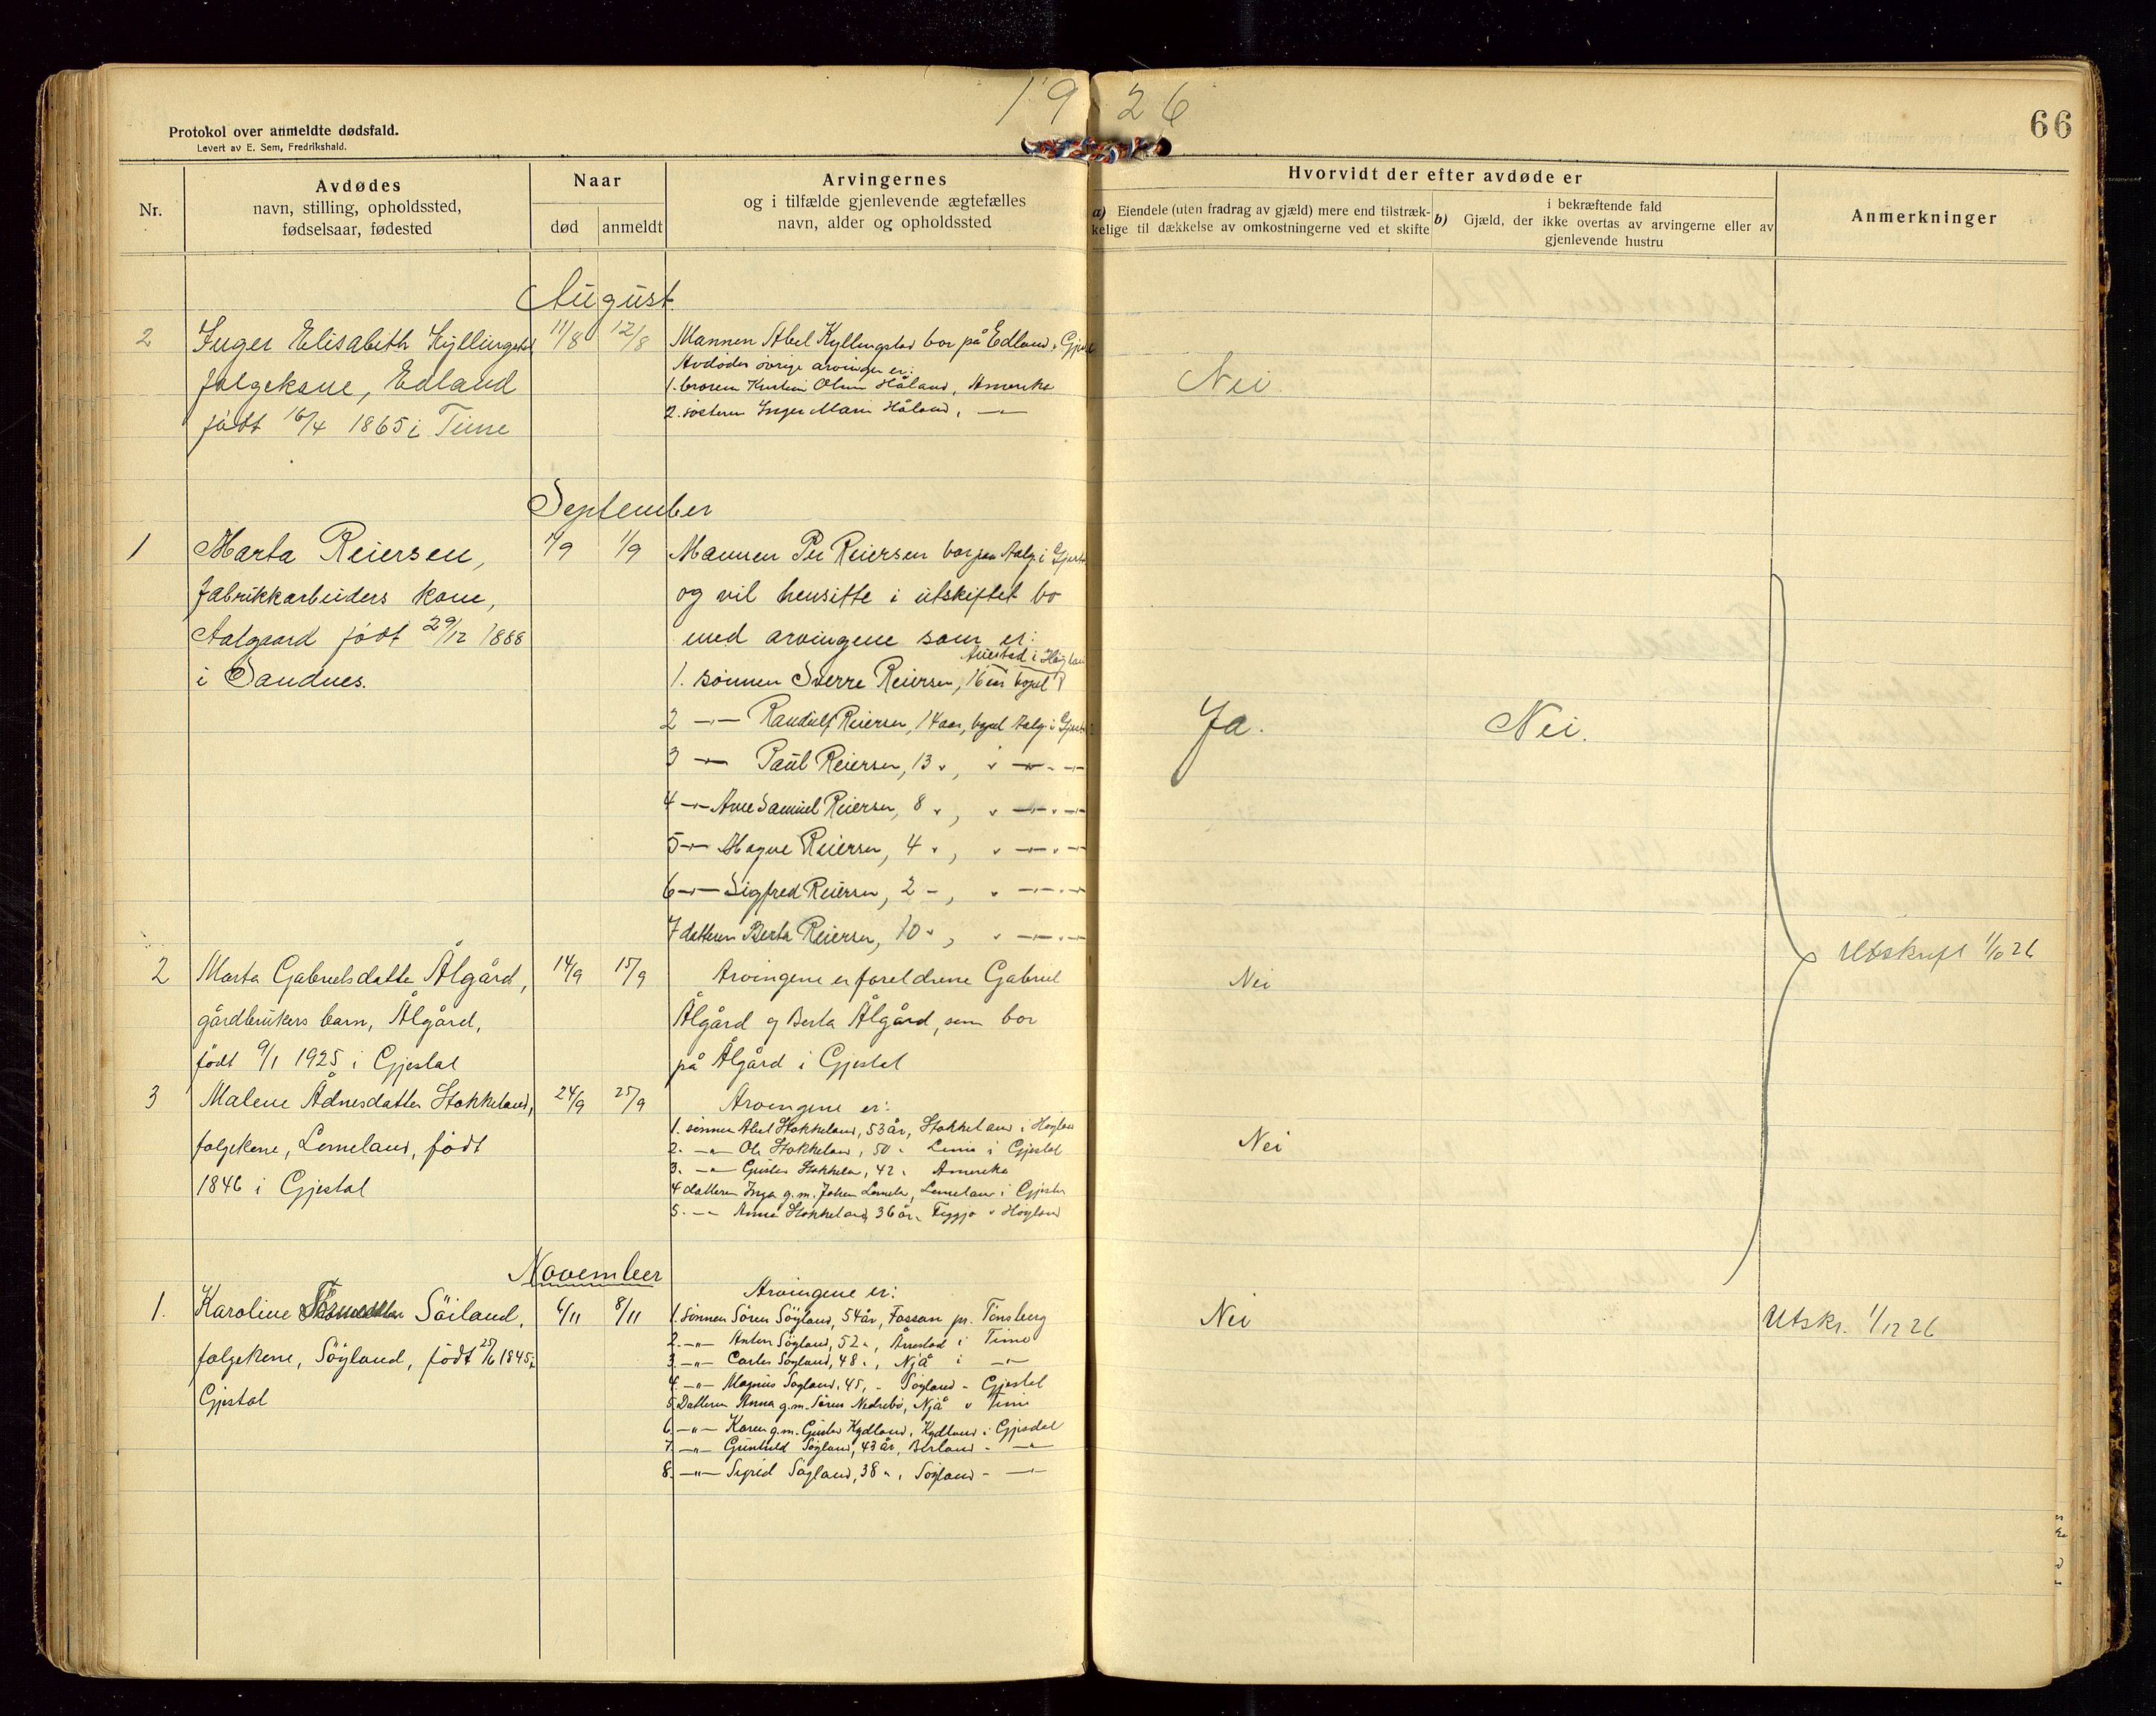 1926
66
Protokol over anmeldte dødsfald.
Levert av E. Sem, Fredrikshald.
Nr.
Avdødes
navn, stilling, opholdssted,
fødselsaar, fødested
Naar
død
anmeldt
Arvingernes
og i tilfælde gjenlevende ægtefælles
navn, alder og opholdssted
Hvorvidt der efter avdøde er
a) Eiendele (uten fradrag av gjæld) mere end tilstræk-
kelige til dækkelse av omkostningerne ved et skifte
i bekræftende fald
b) Gjæld, der ikke overtas av arvingerne eller av
gjenlevende hustru
Anmerkninger
August
2 Inger Elisabith Kyllingstad 11/8 12/8 Mannen Abel Kyllingstad bor på Edland i Gjestal
Avdødes øvrige arvinger er:
folgekone, Edland 1. broren Olsen Håland, Amerika Nei.
2. søsteren Inger Marie Håland, —"—
født 16/4 1865 i Time
September
1 Marta Reiersen, 1/9 1/9 Mannen Per Reiersen bor paa Aalg. i Gjestal
fabrikkarbeiders kone, og vil hensitte i uskiftet bo
Aalgaard født 29/12 1888 med arvingene som er:
i Høyland
i Sandnes. 1. sønnen Sverre Reiersen, 16 aar bopel
2 —"— Randulf Reiersen, 14 aar, bopel Aalg. i Gjestal Ja. Nei.
3 —"— Paul Reiersen, 13 ", " —"—
4 —"— Arne Samuel Reiersen, 8 ", " —"—
5 —"— Magne Reiersen, 4 ", " —"—
6 —"— Sigfred Reiersen, 2 –, " —"—
7 datteren Berta Reiersen, 10 ", " —"—
Utskrift 1/10 26
2 Marta Gabrielsdatter Ålgård, 14/9 15/9 Arvingene er foreldrene Gabriel Nei
gårdbrukers barn, Ålgård, Ålgård og Berta Ålgård, som bor
født 9/1 1925 i Gjestal på Ålgård i Gjestal
3 Malene Ådnesdatter Stokkeland, 24/9 25/9 Arvingene er:
1. sønnen Abel Stokkeland, 53 år, Stokkeland i Høyland
folgekone, Lomeland, født 2. —"— Ole Stokkeland, 50 " i Gjestal Nei
3. —"— Stokkeland, 42 " Amerika
1846 i Gjestal 4 datteren Inga g.m. Johan Lomeland, Lomeland i Gjestal
5. —"— Anna Stokkeland 36 år, Figgjo i Høyland
November
Arvingene er:
1. Karoline Söiland, 6/11 8/11 1. Sønnen Sören Söyland, 54 år, Fossan pr. Tönsberg Nei Utskr. 1/12 26
2. —"— Anton Söyland, 52 ", Årrestad i Time
folgekone, Söyland, født 25/6 1845 i 3. —"— Carles Söyland, 48 ", Njå i —"—
4. —"— Magnus Söyland, 45, – Söyland – Gjestal
Gjestal 5. Datteren Anna g.m. Sören Nedrebö, Njå i Time
6. —"— Karen g.m. Gustav Kydland, Kydland i Gjesdal
7. —"— Gunhild Söyland, 43 år, Berland – —"—
8. —"— Sigrid Söyland, 38 ", Söyland – —"—